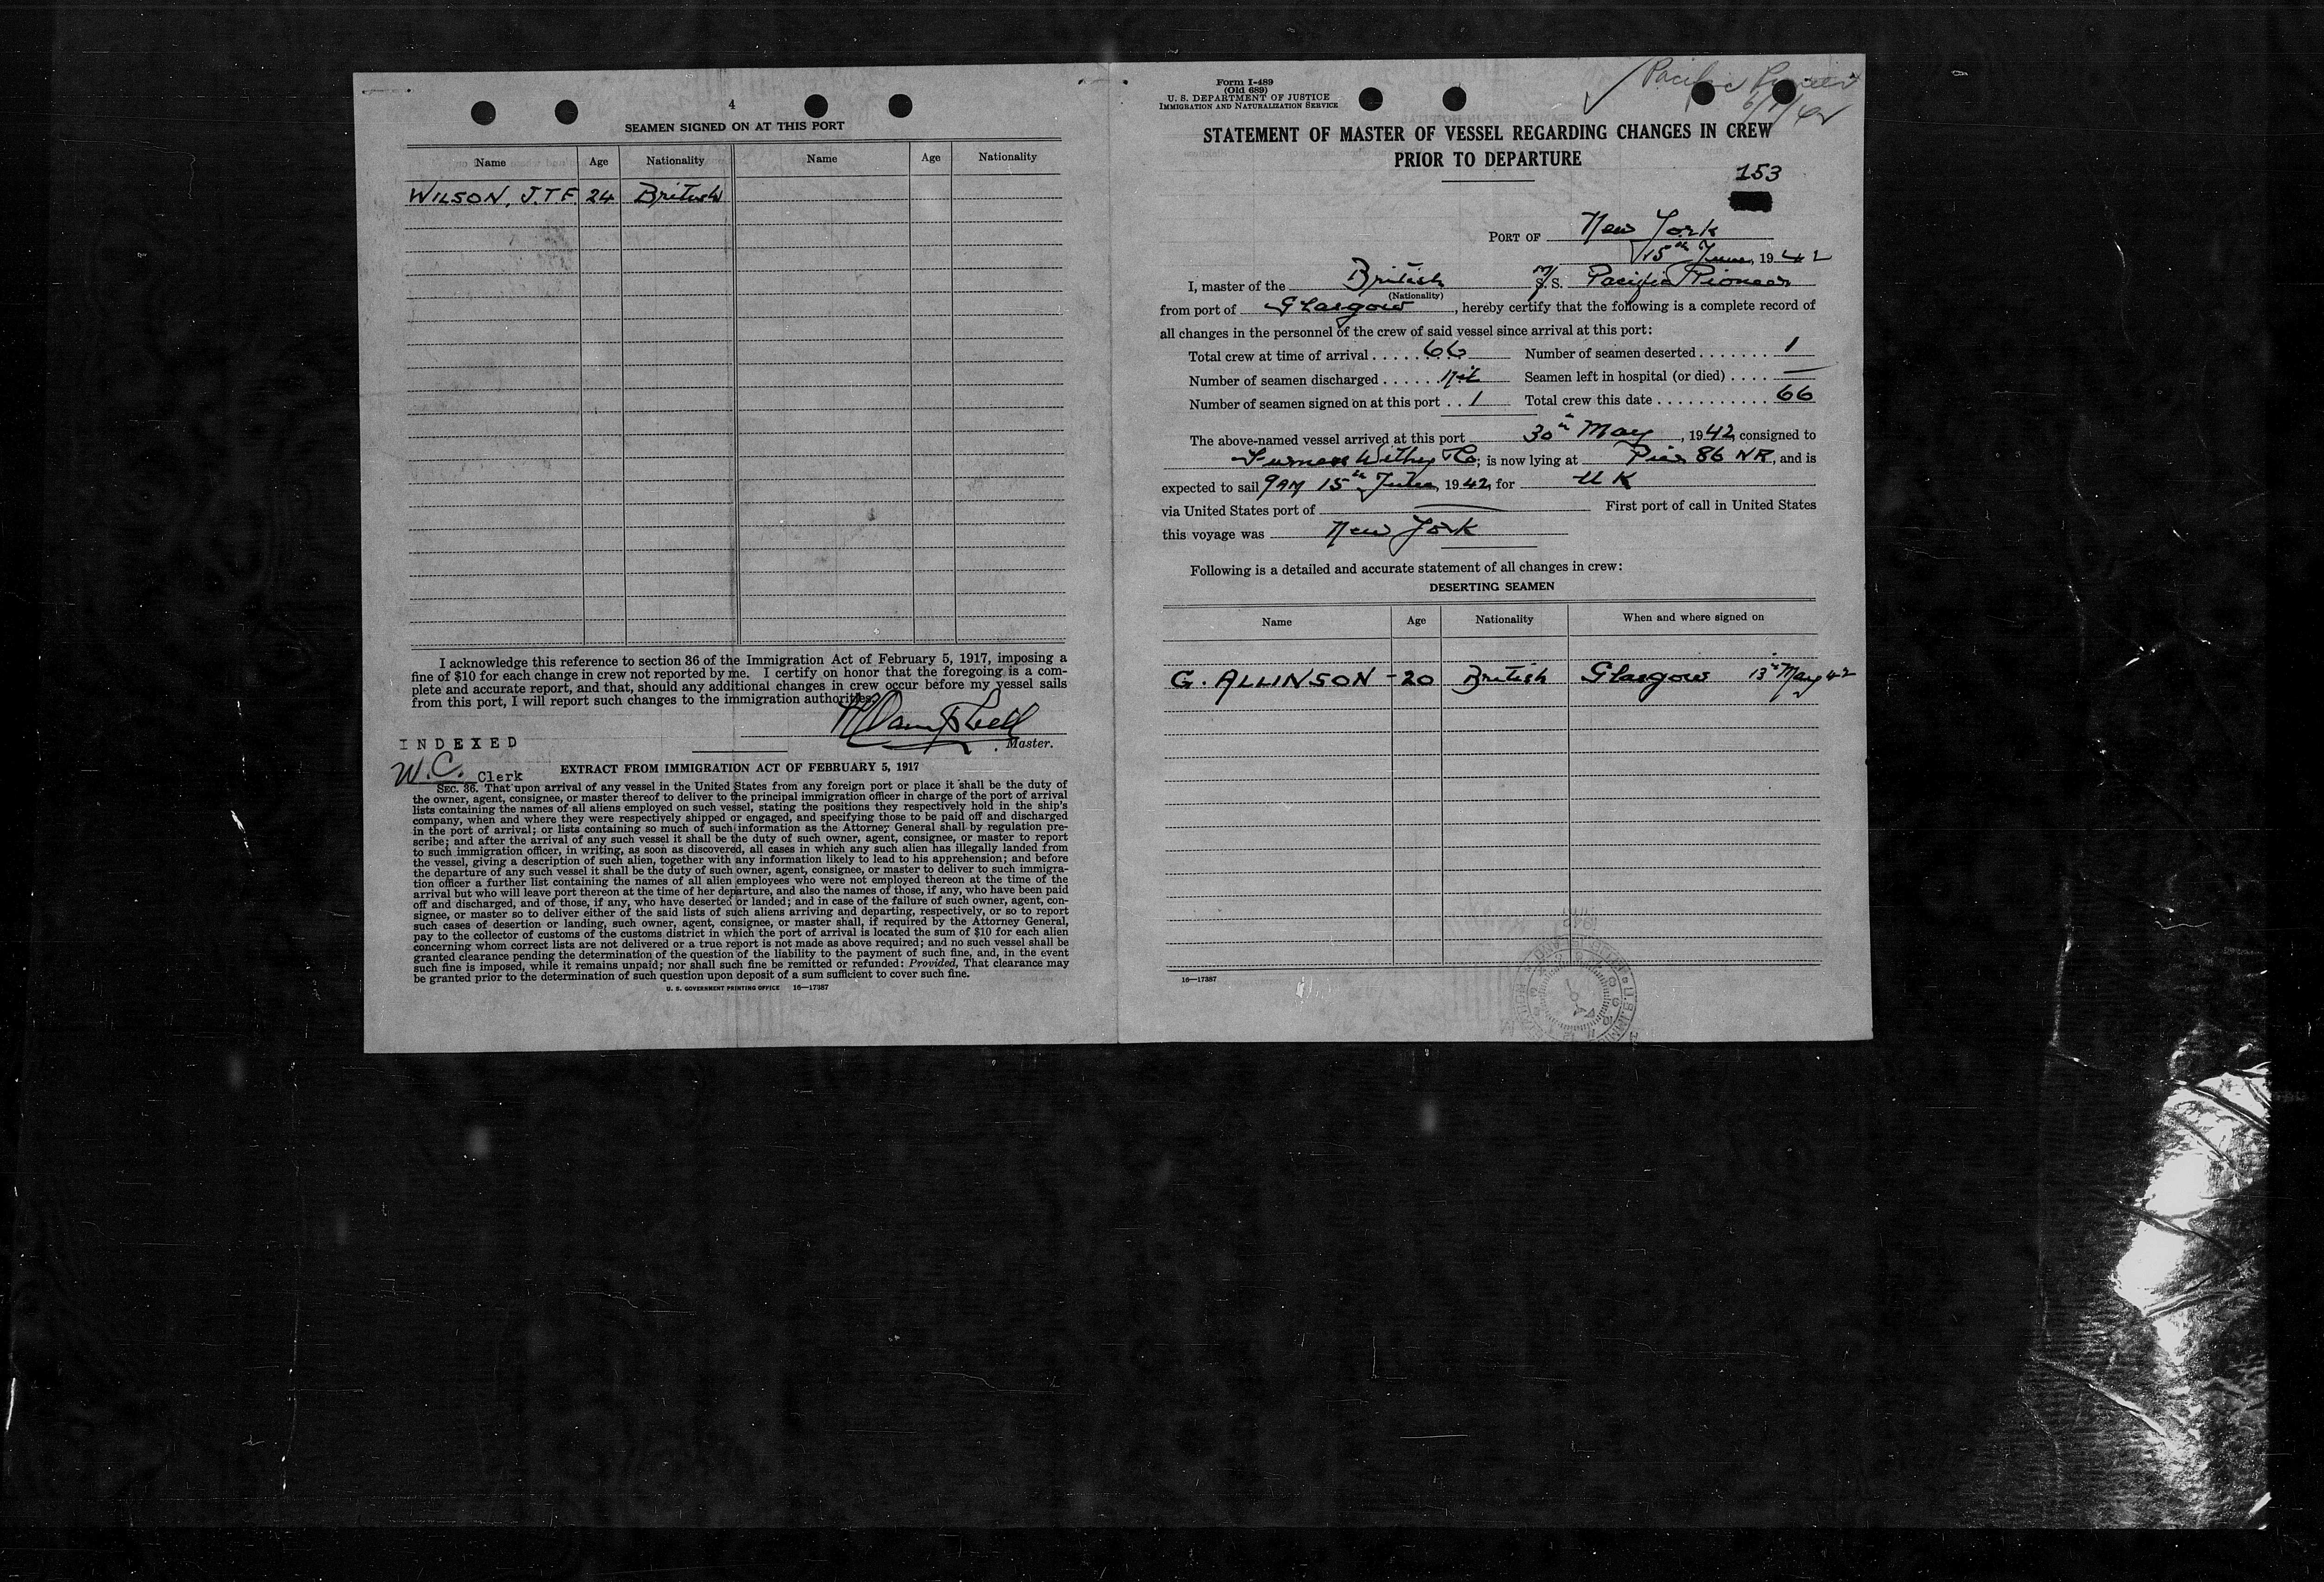 4
SEAMEN SIGNED ON AT THIS PORT
Name Age Nationality Name Age Nationality
WILSON, J.T.F. 24 British
I acknowledge this reference to section 36 of the Immigration Act of February 5, 1917, imposing a
fine of $10 for each change in crew not reported by me. I certify on honor that the foregoing is a com-
plete and accurate report, and that, should any additional changes in crew occur before my vessel sails
from this port, I will report such changes to the immigration authorities.
Master.
INDEXED
W.C. Clerk
EXTRACT FROM IMMIGRATION ACT OF FEBRUARY 5, 1917
SEC. 36. That upon arrival of any vessel in the United States from any foreign port or place it shall be the duty of
the owner, agent, consignee, or master thereof to deliver to the principal immigration officer in charge of the port of arrival
lists containing the names of all aliens employed on such vessel, stating the positions they respectively hold in the ship's
company, when and where they were respectively shipped or engaged, and specifying those to be paid off and discharged
in the port of arrival; or lists containing so much of such information as the Attorney General shall by regulation pre-
scribe; and after the arrival of any such vessel it shall be the duty of such owner, agent, consignee, or master to report
to such immigration officer, in writing, as soon as discovered, all cases in which any such alien has illegally landed from
the vessel, giving a description of such alien, together with any information likely to lead to his apprehension; and before
the departure of any such vessel it shall be the duty of such owner, agent, consignee, or master to deliver to such immigra-
tion officer a further list containing the names of all alien employees who were not employed thereon at the time of the
arrival but who will leave port thereon at the time of her departure, and also the names of those, if any, who have been paid
off and discharged, and of those, if any, who have deserted or landed; and in case of the failure of such owner, agent, con-
signee, or master so to deliver either of the said lists of such aliens arriving and departing, respectively, or so to report
such cases of desertion or landing, such owner, agent, consignee, or master shall, if required by the Attorney General,
pay to the collector of customs of the customs district in which the port of arrival is located the sum of $10 for each alien
concerning whom correct lists are not delivered or a true report is not made as above required; and no such vessel shall be
granted clearance pending the determination of the question of the liability to the payment of such fine, and, in the event
such fine is imposed, while it remains unpaid; nor shall such fine be remitted or refunded: Provided, That clearance may
be granted prior to the determination of such question upon deposit of a sum sufficient to cover such fine.
U. S. GOVERNMENT PRINTING OFFICE 16—17387
Form I-489
(Old 689)
U. S. DEPARTMENT OF JUSTICE
IMMIGRATION AND NATURALIZATION SERVICE
Pacific Pioneer
STATEMENT OF MASTER OF VESSEL REGARDING CHANGES IN CREW
PRIOR TO DEPARTURE
153
PORT OF New York
15th June, 1942
I, master of the British M/S.S. Pacific Pioneer
(Nationality)
from port of Glasgow, hereby certify that the following is a complete record of
all changes in the personnel of the crew of said vessel since arrival at this port:
Total crew at time of arrival 66 Number of seamen deserted 1
Number of seamen discharged Nil Seamen left in hospital (or died) —
Number of seamen signed on at this port 1 Total crew this date 66
The above-named vessel arrived at this port 30th May, 1942, consigned to
Furness Withy & Co; is now lying at Pier 86 NR, and is
expected to sail 9AM 15th June, 1942, for UK
via United States port of — First port of call in United States
this voyage was New York
Following is a detailed and accurate statement of all changes in crew:
DESERTING SEAMEN
Name Age Nationality When and where signed on
G. ALLINSON - 20 British Glasgow 13th May 42
16—17387